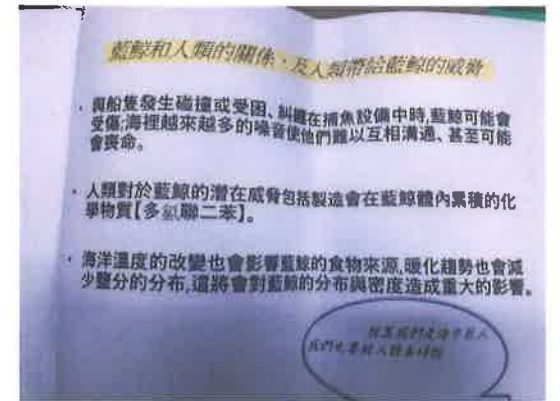 藍鯨和人類的關係、及人類帶給藍鯨的威脅
· 與船隻發生碰撞或受困、糾纏在捕魚設備中時,藍鯨可能會
受傷;海裡越來越多的噪音使他們難以互相溝通、甚至可能
會喪命。
· 人類對於藍鯨的潛在威脅包括製造會在藍鯨體內累積的化
學物質【多氯聯二苯】。
· 海洋溫度的改變也會影響藍鯨的食物來源,暖化趨勢也會減
少鹽分的分布,這將會對藍鯨的分布與密度造成重大的影響。
我們是海中巨人
我們也